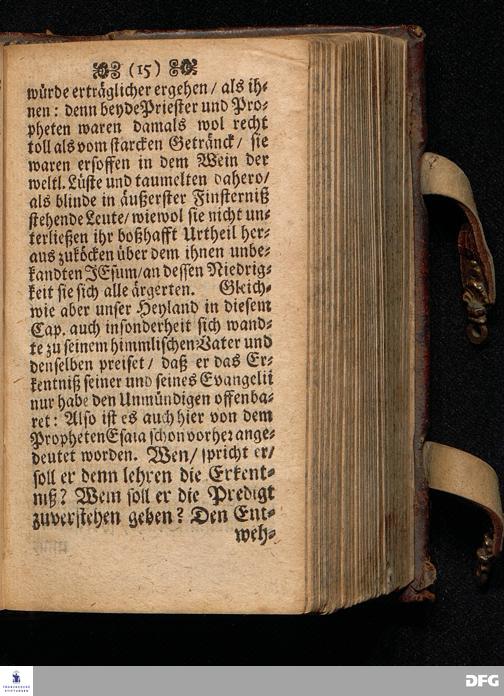 (15)
würde erträglicher ergehen / als ih-
nen : denn beyde Priester und Pro-
pheten waren damals wol recht
toll als vom starcken Getränck / sie
waren ersoffen in dem Wein der
weltl. Lüste und taumelten dahero /
als blinde in äußerster Finsterniß
stehende Leute / wiewol sie nicht un-
terließen ihr boßhafft Urtheil her-
aus zuköcken über dem ihnen unbe-
kandten JEsum / an dessen Niedrig-
keit sie sich alle ärgerten. Gleich-
wie aber unser Heyland in diesem
Cap. auch insonderheit sich wand-
te zu seinem himmlischen Vater und
denselben preiset / daß er das Er-
kentniß seiner und seines Evangelii
nur habe den Unmündigen offenba-
ret : Also ist es auch hier von dem
Propheten Esaia schon vorher ange-
deutet worden. Wen / spricht er /
soll er denn lehren die Erkent-
niß? Wem soll er die Predigt
zuverstehen geben? Den Ent-
weh-
FRANCKESCHE
STIFTUNGEN
DFG